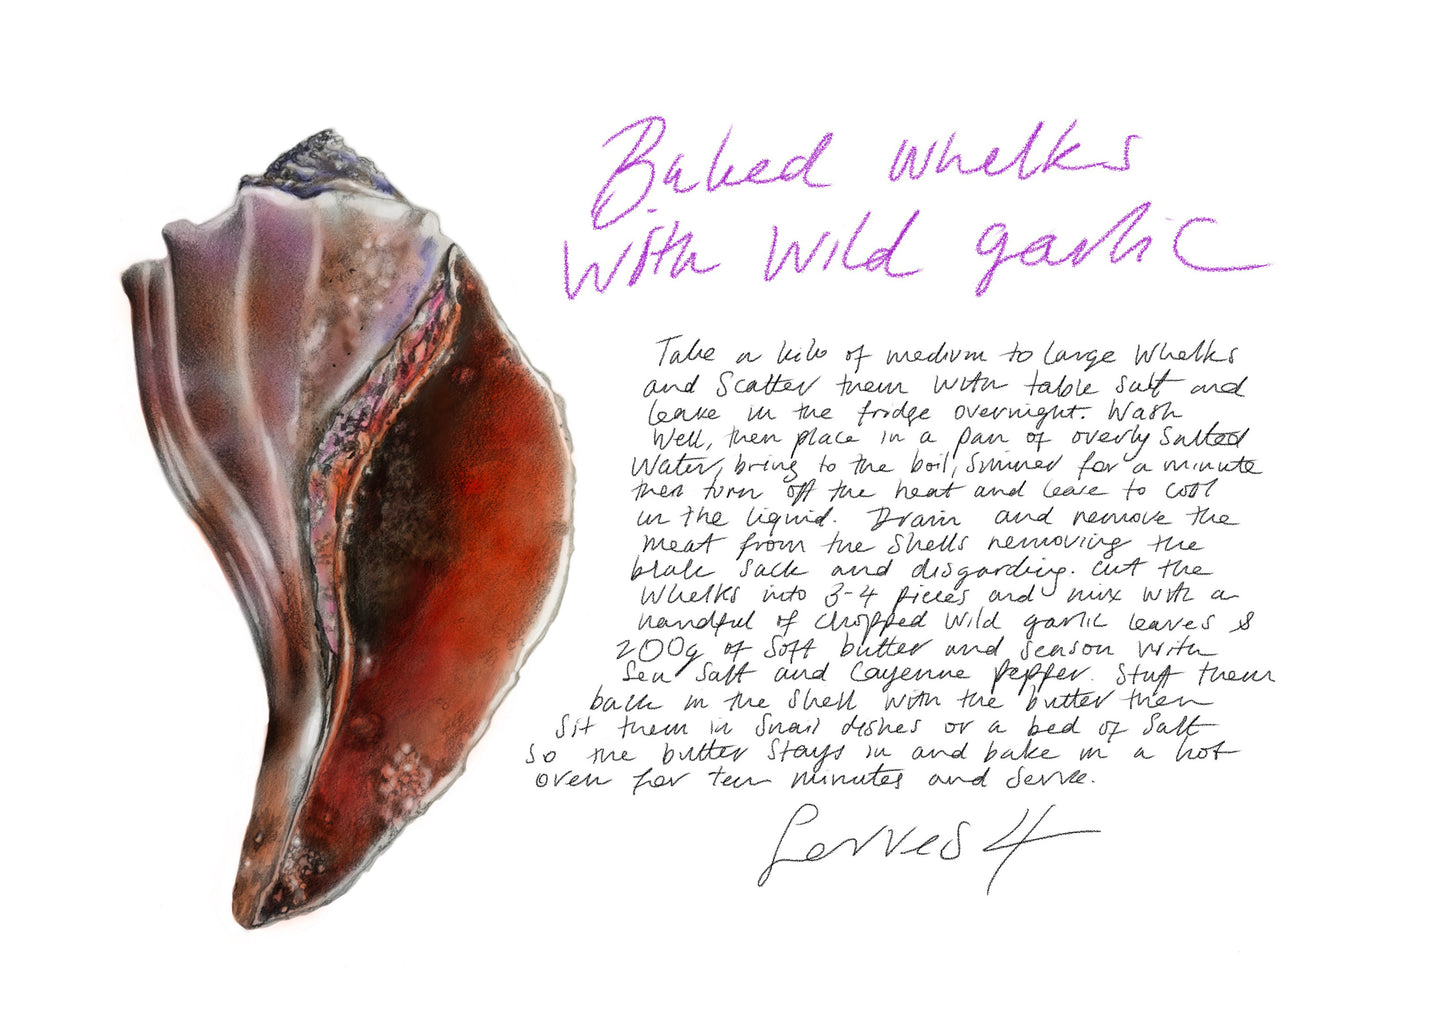 Baked whelks
with wild garlic
Take a kilo of medium to large whelks
and scatter them with table salt and
leave in the fridge overnight. Wash
well, then place in a pan of overly salted
water, bring to the boil, simmer for a minute
then turn off the heat and leave to cool
in the liquid. Drain and remove the
meat from the shells removing the
black sack and disgarding. Cut the
whelks into 3-4 pieces and mix with a
handful of chopped wild garlic leaves &
200g of soft butter and season with
sea salt and Cayenne pepper. Stuff them
back in the shell with the butter then
sit them in snail dishes or a bed of salt
so the butter stays in and bake in a hot
oven for ten minutes and serve.
Serves 4